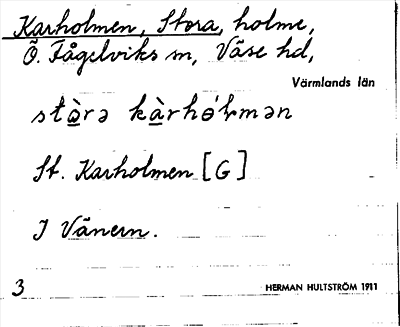 Karholmen, Stora, holme,
Ö. Fågelviks sn, Väse hd,
Värmlands län
stàrə kàrhólmən
St. Karholmen [G]
I Vänern.
3
HERMAN HULTSTRÖM 1911